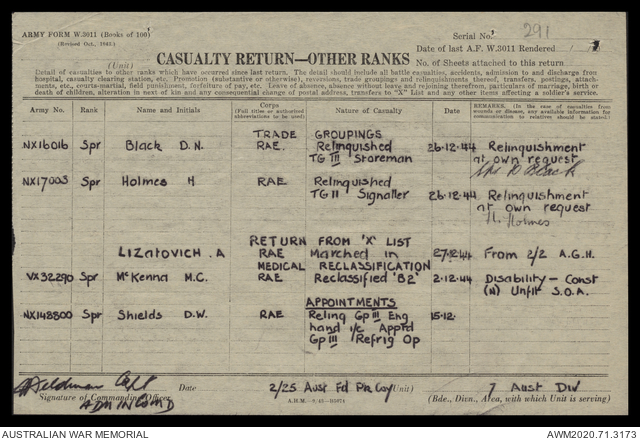 ARMY FORM W.3011 (Books of 100)
(Revised Oct., 1942)
Serial No. 291
(Unit)
Date of last A.F. W.3011 Rendered / /
CASUALTY RETURN—OTHER RANKS
No. of Sheets attached to this return
Detail of casualties to other ranks which have occurred since last return. The detail should include all battle casualties, accidents, admission to and discharge from
hospital, casualty clearing station, etc. Promotion (substantive or otherwise), reversions, trade groupings and relinquishments thereof, transfers, postings, attach-
ments, etc., courts-martial, field punishment, forfeitures of pay, etc. Leave of absence, absence without leave and rejoining therefrom, particulars of marriage, birth or
death of children, alteration in next of kin and any consequential change of postal address, transfers to "X" List and any other items affecting a soldier's service.
Army No. Rank Name and Initials Corps (Full titles or authorised abbreviations to be used) Nature of Casualty Date REMARKS. (In the case of casualties from wounds or disease, any available information for communication to relatives should be stated.)
TRADE GROUPINGS
NX16016 Spr Black D.N. RAE Relinquished 26-12-44 Relinquishment
TG III Storeman at own request
Spr D Black
NX17003 Spr Holmes H RAE Relinquished
TG II Signaller 26-12-44 Relinquishment
at own request
H. Holmes
RETURN FROM 'X' LIST
LIZATOVICH . A RAE Marched in 27-12-44 From 2/2 A.G.H.
MEDICAL RECLASSIFICATION
VX32290 Spr McKenna M.C. RAE Reclassified 'B2' 2-12-44 Disability - Const
(N) Unfit S.O.A.
APPOINTMENTS
NX148800 Spr Shields D.W. RAE Relinq Gp III Eng 15-12-
hand i/c Apptd
Gp III Refrig Op
Feldman Capt Date 2/25 Aust Fd Pk Coy (Unit) 7 Aust Div
Signature of Commanding Officer (Bde., Divn., Area, with which Unit is serving)
ADMIN COMD
AUSTRALIAN WAR MEMORIAL AWM2020.71.3173